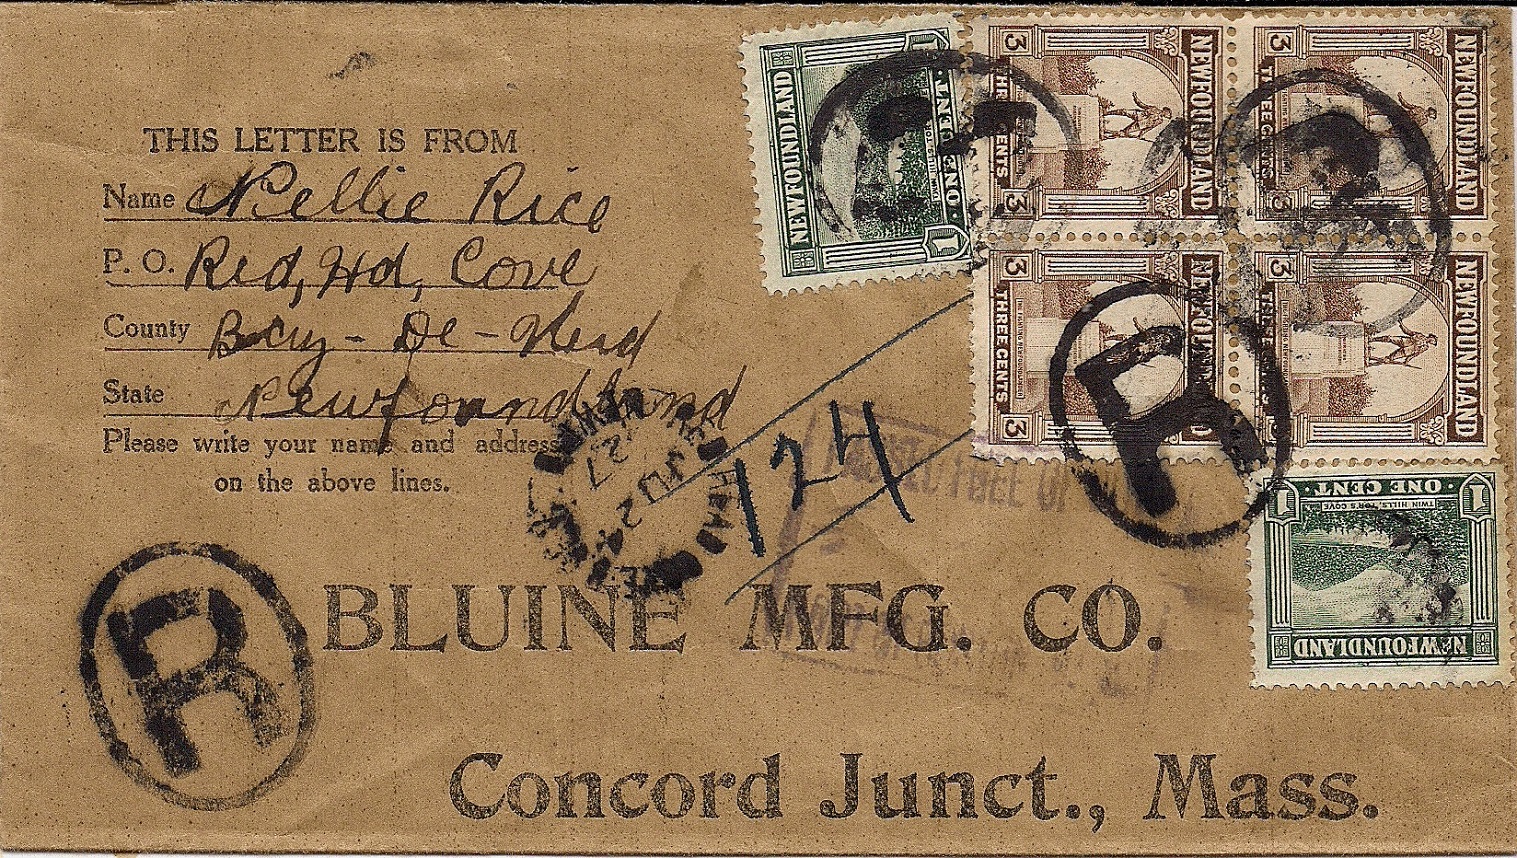 THIS LETTER IS FROM
Name Nellie Rice
P. O. Red, Hd, Cove
County Bay-De-Verd
State Newfoundland
Please write your name and address
on the above lines.
124
BLUINE MFG. CO.
Concord Junct., Mass.
R
R
NEWFOUNDLAND
ONE CENT
1
1
NEWFOUNDLAND
THREE CENTS
3
3
NEWFOUNDLAND
THREE CENTS
3
NEWFOUNDLAND
THREE CENTS
THE FIGHTING NEWFOUNDLANDER
3
3
NEWFOUNDLAND
THREE CENTS
3
1 ONE CENT 1
TWIN HILLS, TOR'S COVE
NEWFOUNDLAND
RED HEAD
JU 24
27